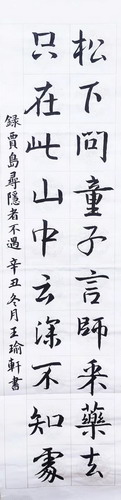 松下問童子言師采藥去
只在此山中云深不知處
錄賈島尋隱者不遇 辛丑冬月王瑜軒書